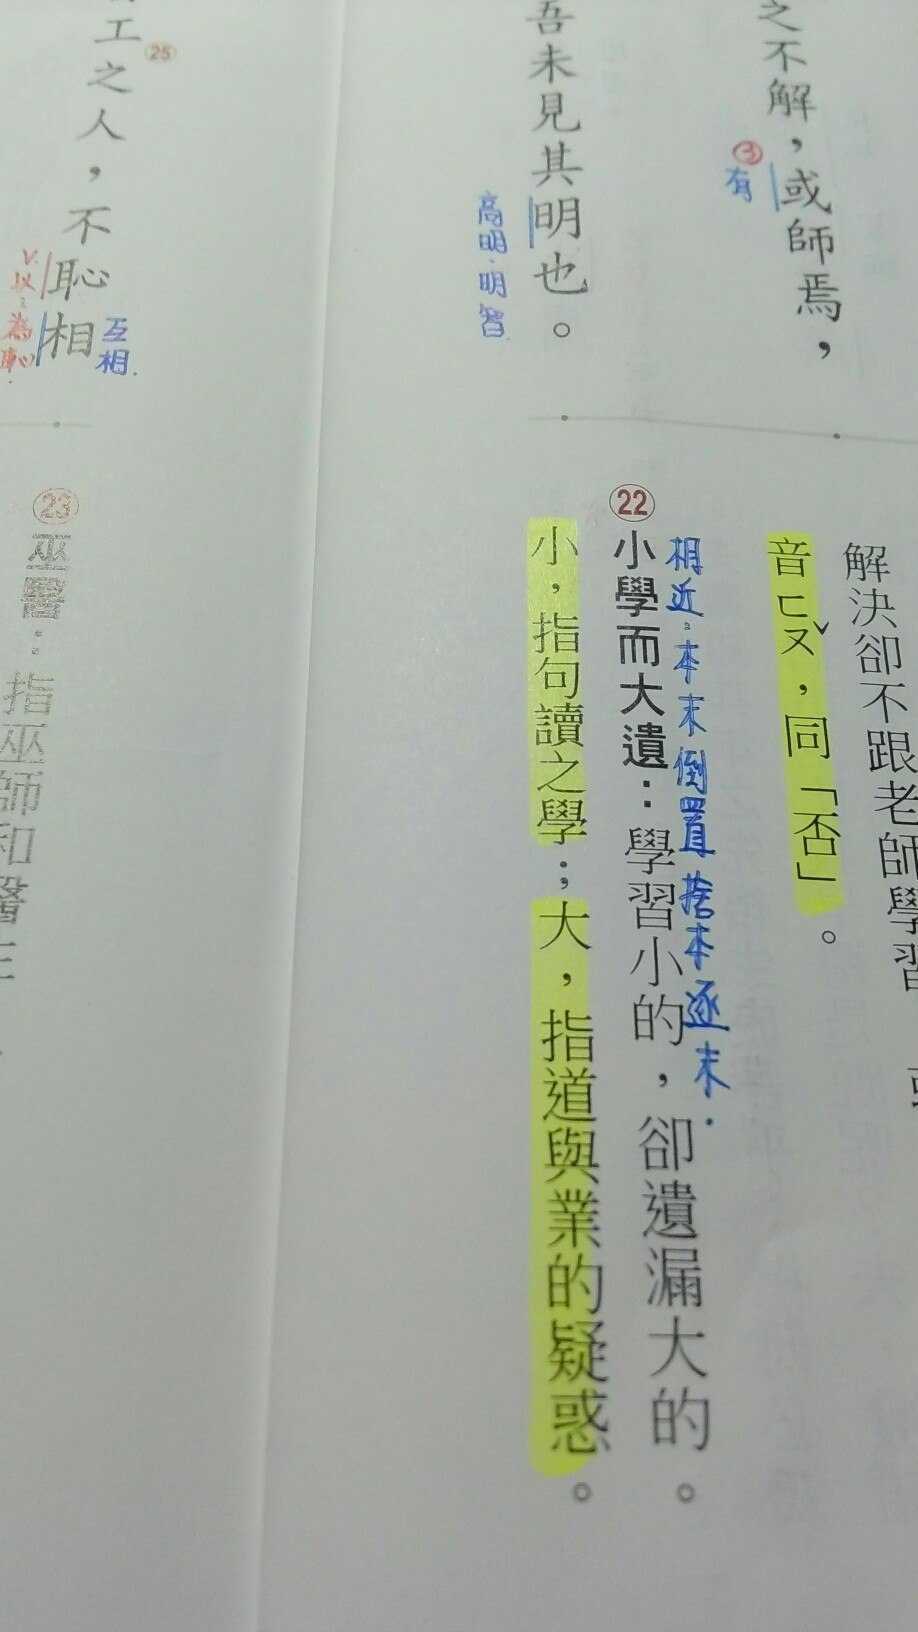 之不解，或師焉，
③有
吾未見其明也。
高明、明智
工之人，不恥相
㉕
互相.
V.以…為恥.
解決卻不跟老師學習
音ㄈㄡˇ，同「否」。
相近：本末倒置 捨本逐末.
㉒小學而大遺：學習小的，卻遺漏大的。
小，指句讀之學；大，指道與業的疑惑。
㉓巫醫：指巫師和醫